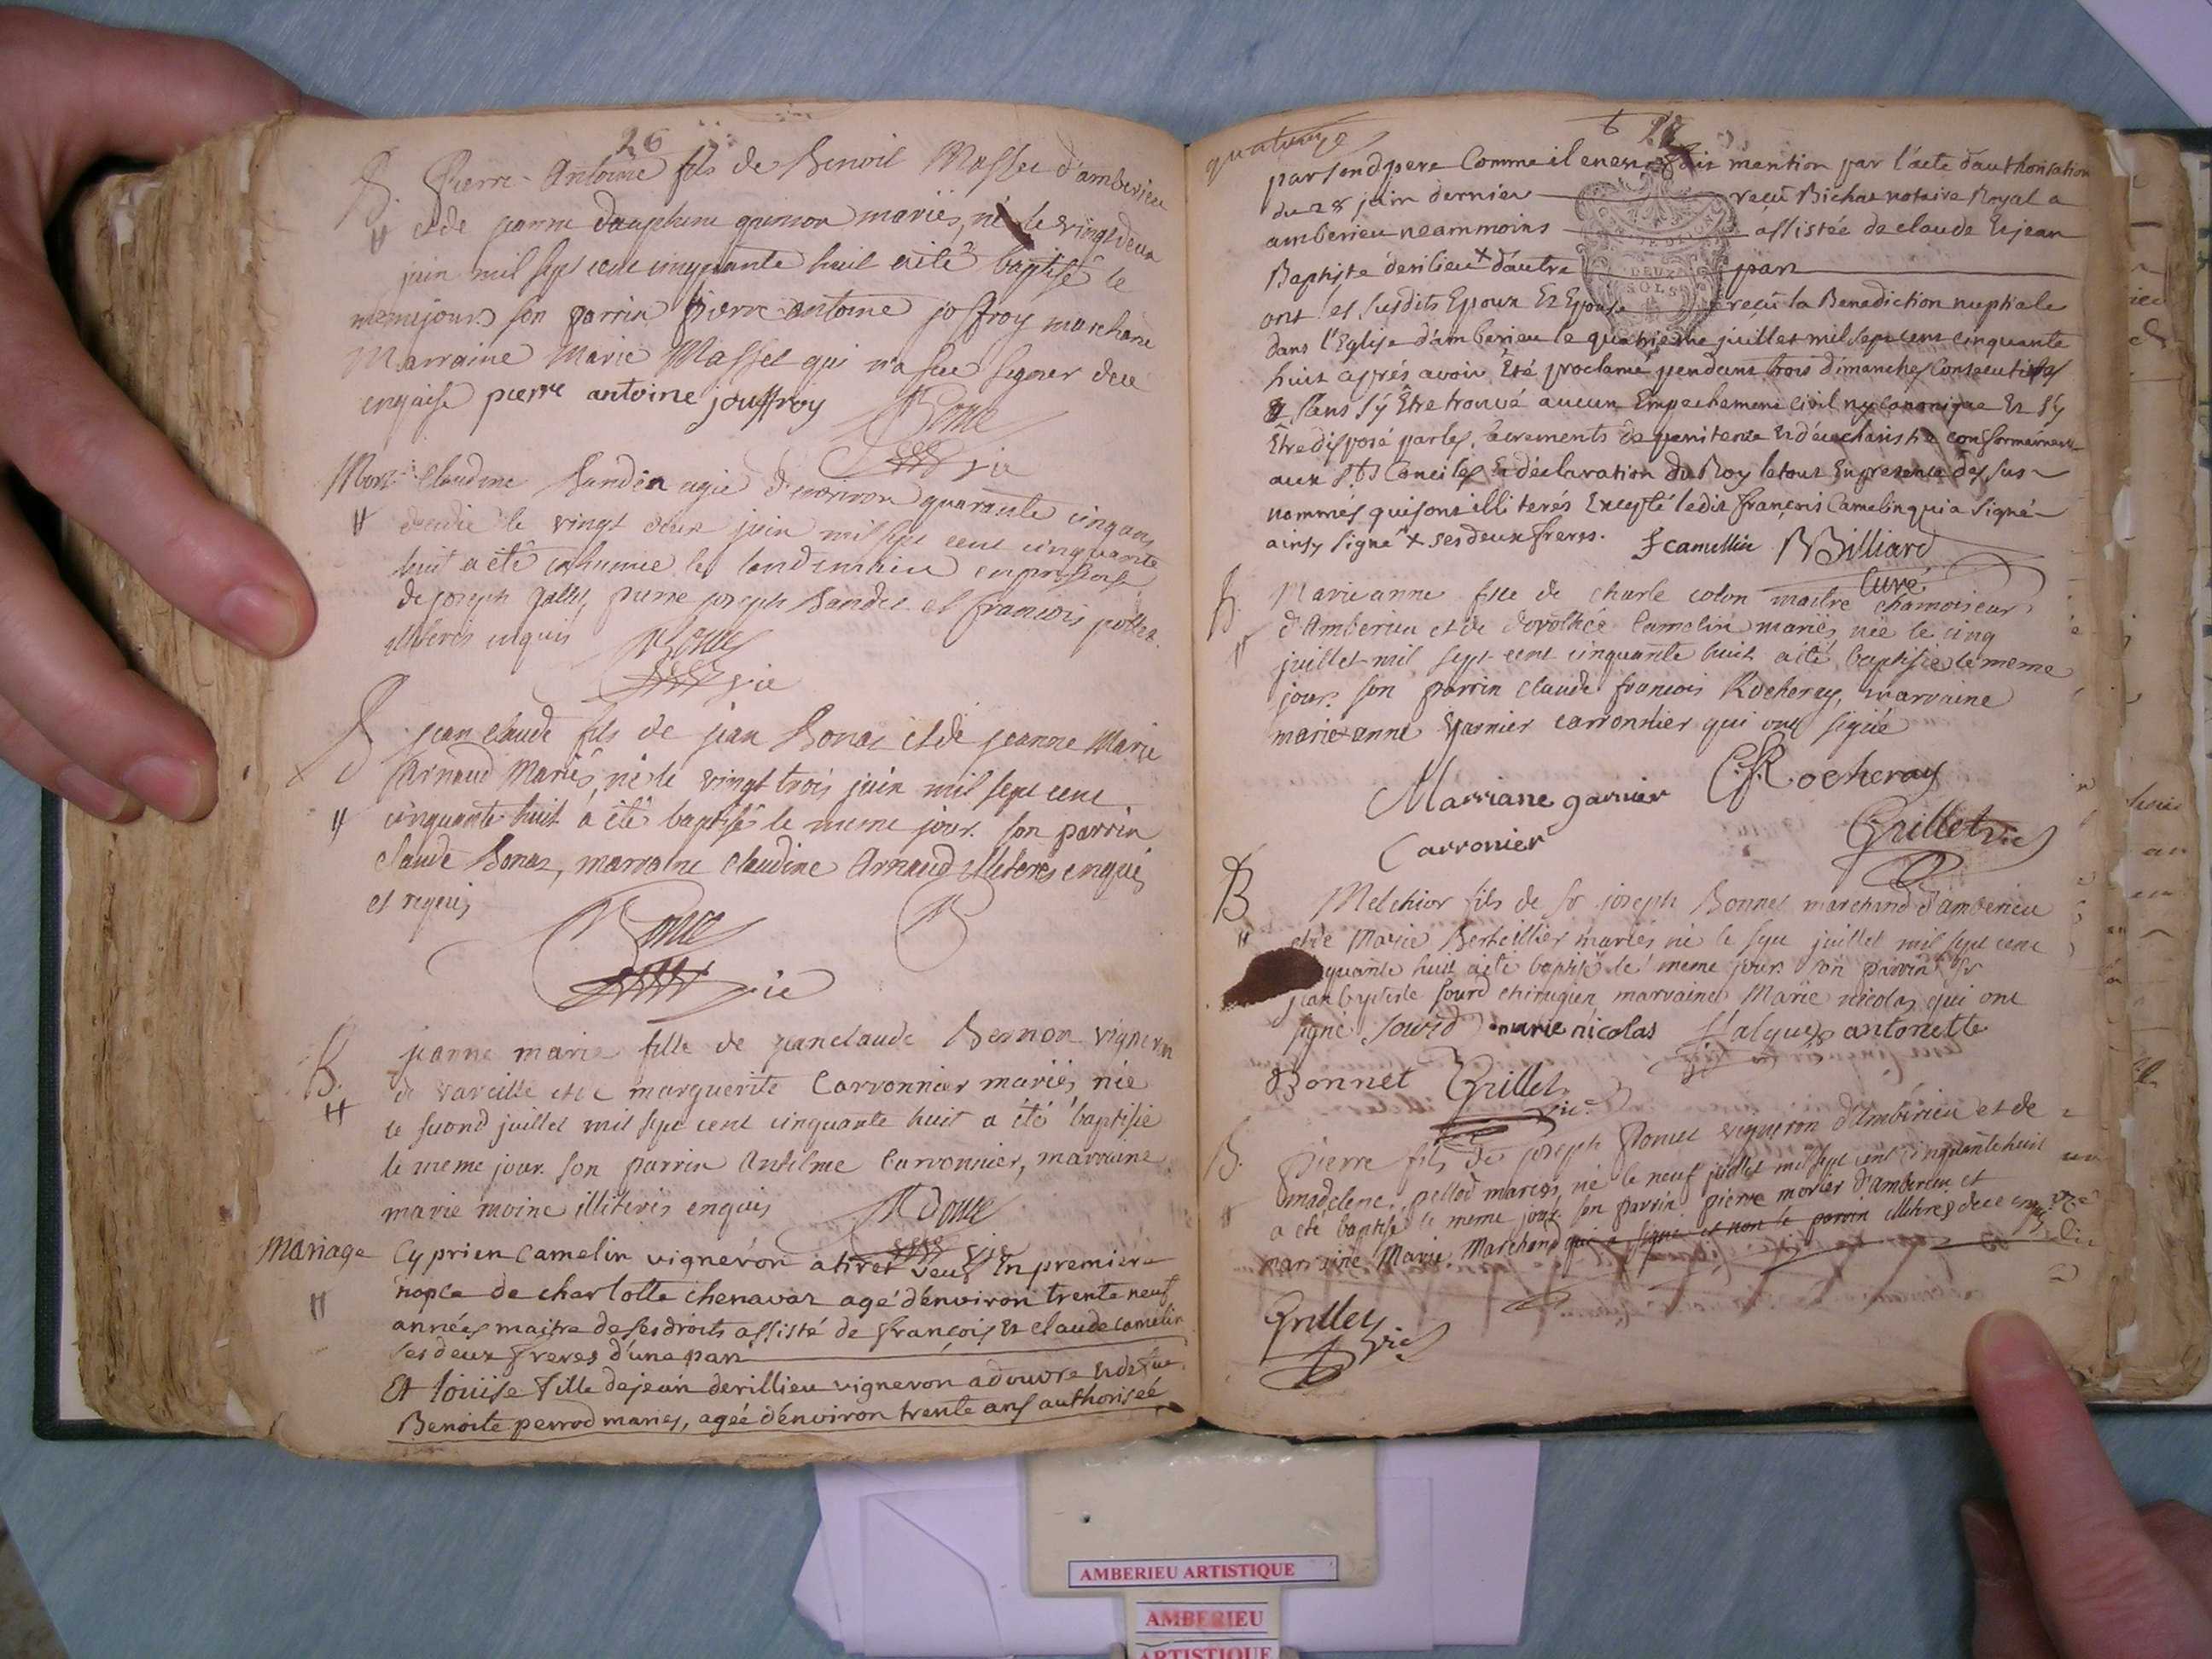 26
B. Pierre Antoine fils de Benoit Massee d'amberieu
et de jeanne dauphine mariés, né le vingt deux
juin mil sept cent cinquante huit a été baptisé le
meme jour son parrin pierre antoine joffroy marchand
Marraine Marie Massee qui n'a sceu signer dece
enquise pierre antoine jouffroy
vic
Mort Claudine agée d'environ quarante cinq ans
decedée le vingt deux juin mil sept cent cinquante
huit a été inhumée le landemain en presence
de joseph pierre joseph et francois
illiterés enquis
vic
B jean claude fils de jean Bonaz et de jeanne Marie
Arnaud Mariés, né le vingt trois juin mil sept cent
cinquante huit a été baptisé le meme jour. son parrin
claude Bonaz, marraine claudine Arnaud illiterés enquis
et requis
vic
B. jeanne marie fille de jean claude Bernon vigneron
de vareille et de marguerite Carronnier mariés, née
le second juillet mil sept cent cinquante huit a été baptisée
le meme jour. son parrin Antelme Carronnier, marraine
marie moine illiterés enquis
vic
Mariage Cyprien Camelin vigneron a tiret veuf En premiere
nopce de charlotte chenavaz agé d'environ trente neuf
années maitre de ses droits assisté de françois Et claude camelin
ses deux freres d'une part
Et louise fille de jean derillieu vigneron a douvre Et de fue
Benoite perrod mariés, agée d'environ trente ans authorisée
quatorze
par son d. pere Comme il en est fait mention par l'acte d'authorisation
du 28 juin dernier reçû Bichat notaire Royal a
amberieu neammoins assistée de claude Et jean
Baptiste derilieu x d'autre part
DEUX
SOLS
ont les susdits Epoux Et Epouse reçû la Benediction nuptiale
dans l'Eglise d'amberieu le quatrieme juillet mil sept cent cinquante
huit après avoir Eté proclamé pendant trois dimanches Consecutifs
sans s'y Être trouvé aucun Empechement civil ny canonique Et s'y
Être disposé par les sacrements de penitence Et d'eucharistie conformement
aux Sts Conciles Et déclaration du Roy le tout En presence des sus
nommés qui sont illiterés Excepté ledit françois Camelin qui a signé
ainsy signé x ses deux freres. f camellin Billiard
Curé
B. Marie anne fille de charle colon maitre chamoiseur
d'Amberieu et de dorothée Camelin mariés née le cinq
juillet mil sept cent cinquante huit a été baptisée le meme
jour. son parrin claude francois Rocheray, marraine
marie anne garnier carronnier qui ont signé
Marriane garnier C.F. Rocheray
Carronier Grillet vic
B Melchior fils de sr joseph Bonnet marchand d'amberieu
et de Marie Berteillier mariés né le sept juillet mil sept cent
quante huit a été baptisé le meme jour. son parrin sr
jean baptiste sourd chirugien marraine Marie nicolas qui ont
signé Sourd marie nicolas antonette
Bonnet Grillet
vic.
B. Pierre fils de joseph vigneron d'Amberieu et de
madelene pellod mariés, né le neuf juillet mil sept cent cinquante huit
a été baptisé le meme jour son parrin pierre morier d'amberieu et
marraine Marie Marchand qui a signé et non le parrin illiterés dece enquis
Grillet
vic
AMBERIEU ARTISTIQUE
AMBERIEU
ARTISTIQUE